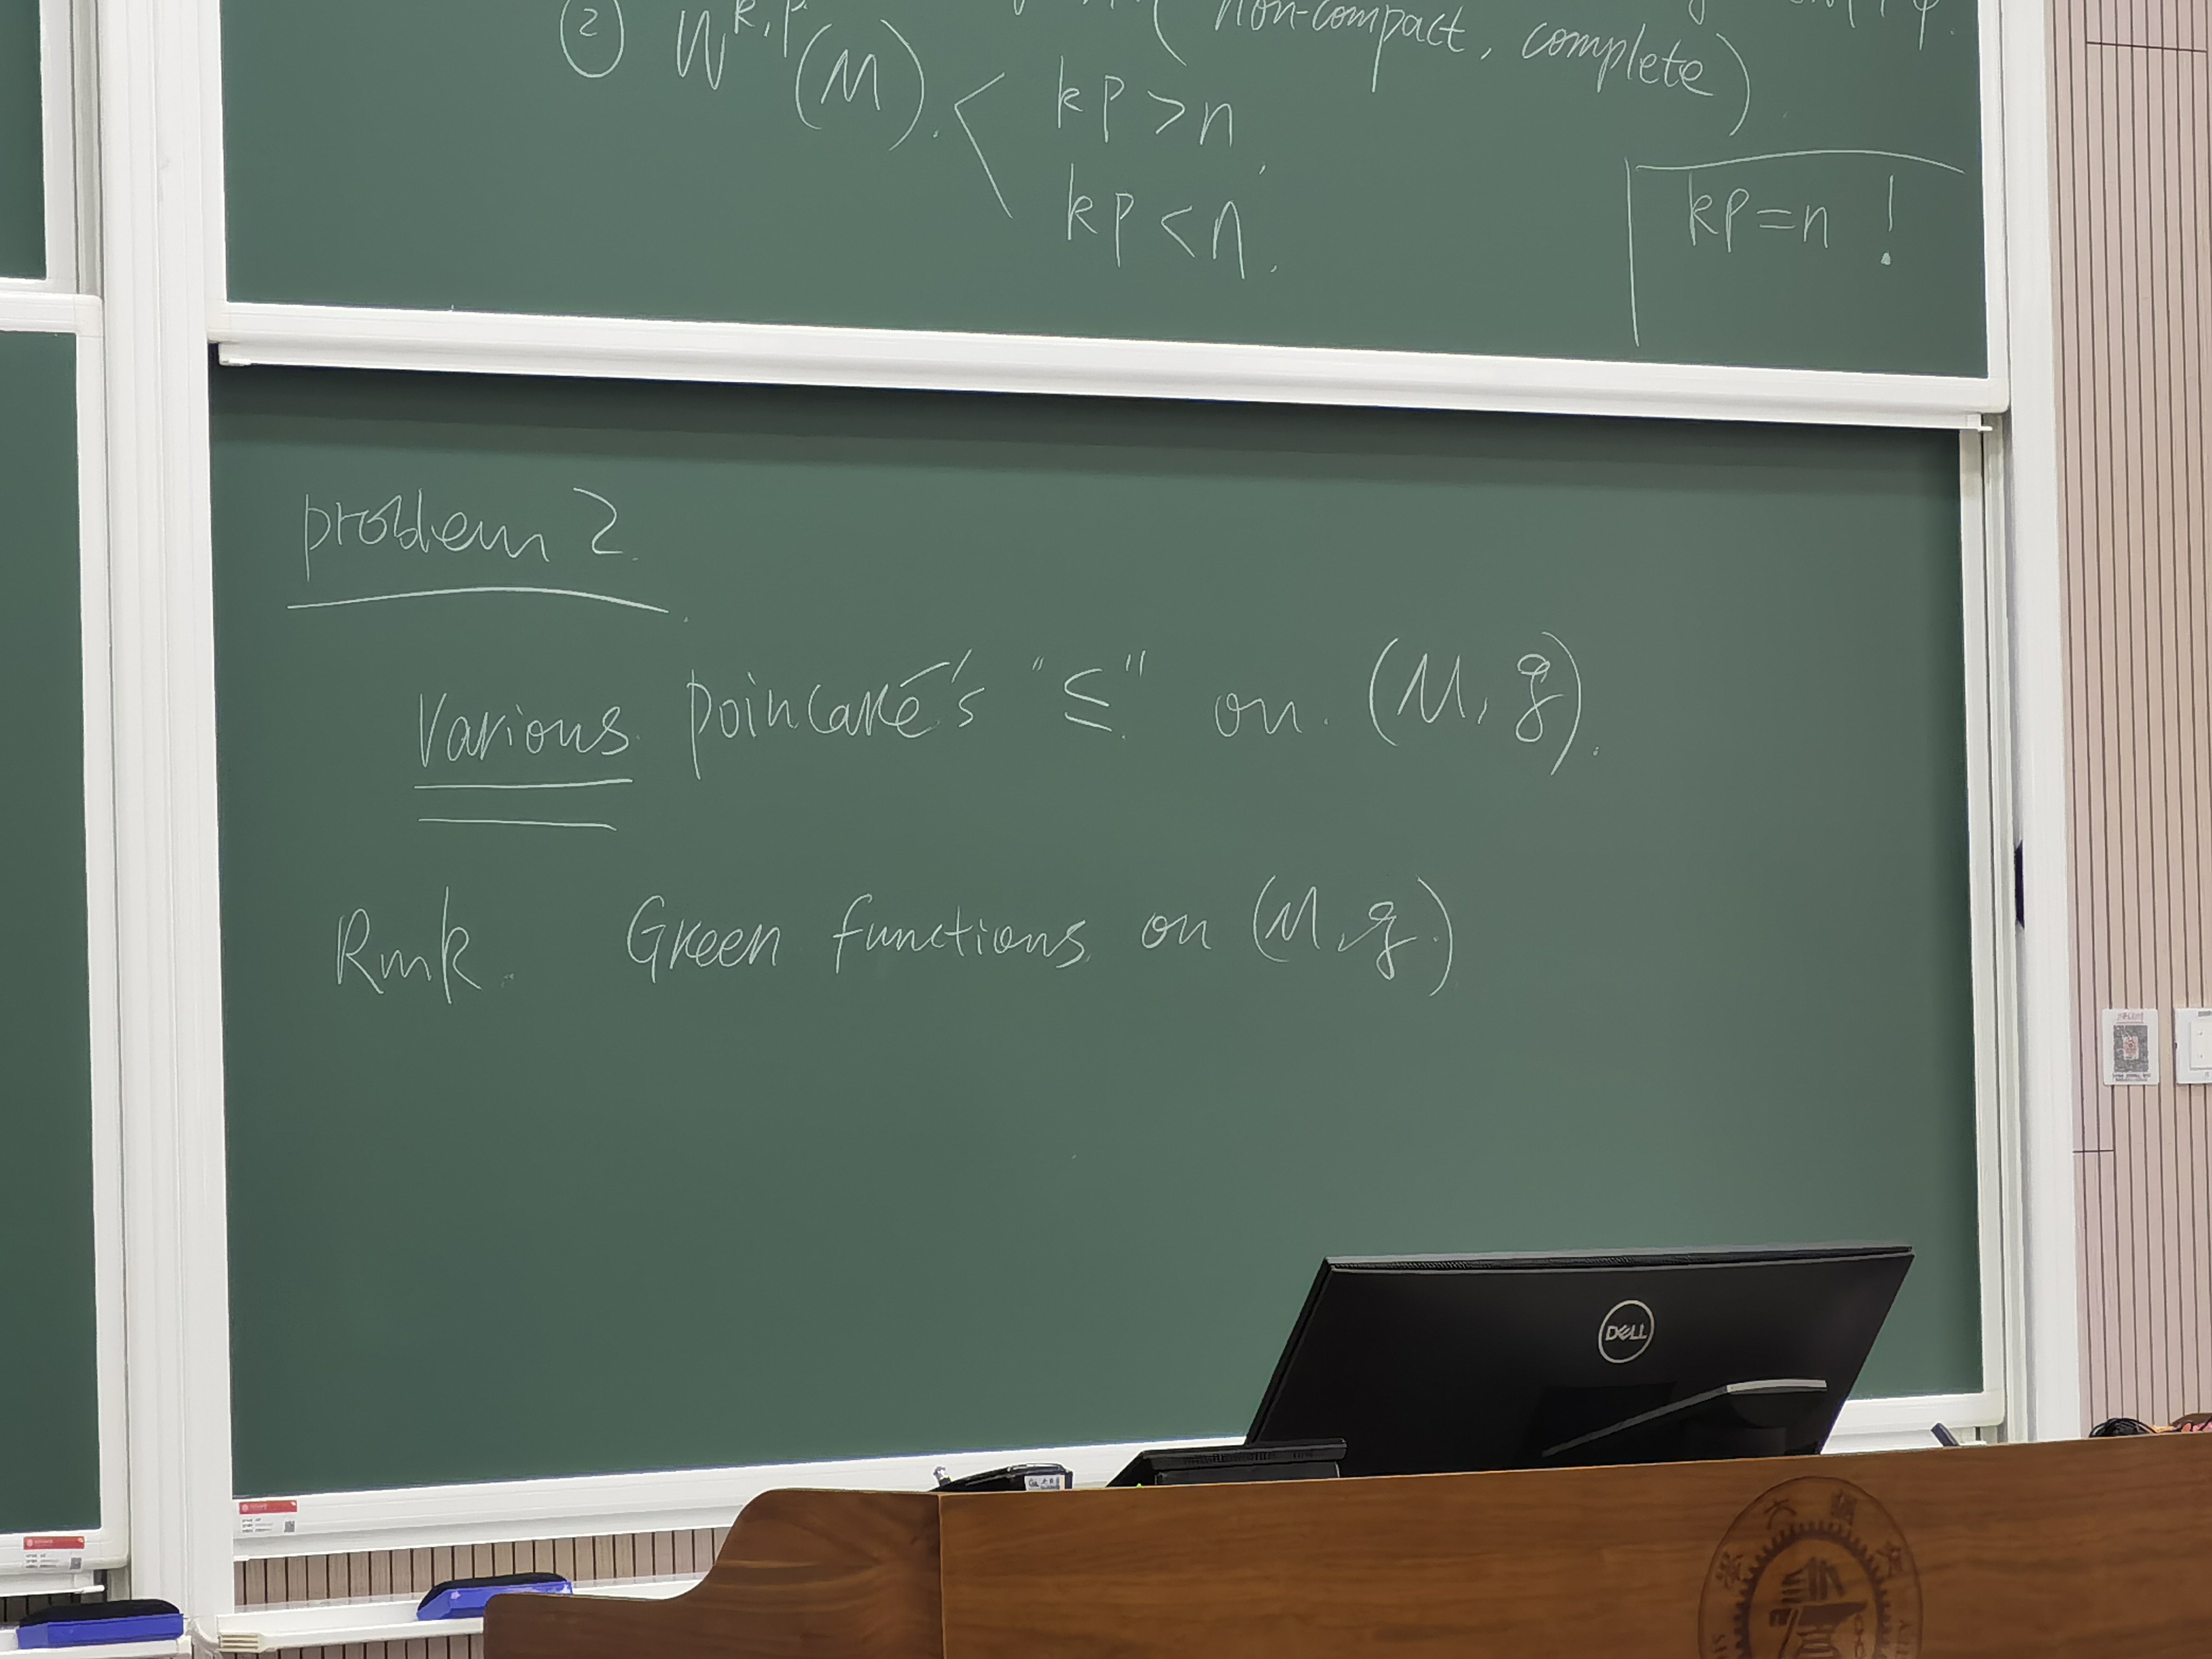 (non-compact, complete)
② W^{k,p}(M). < kp>n,
kp<n.
kp=n !
problem 2.
Various Poincaré's "≤" on (M, g).
Rmk. Green functions on (M, g.)
DELL